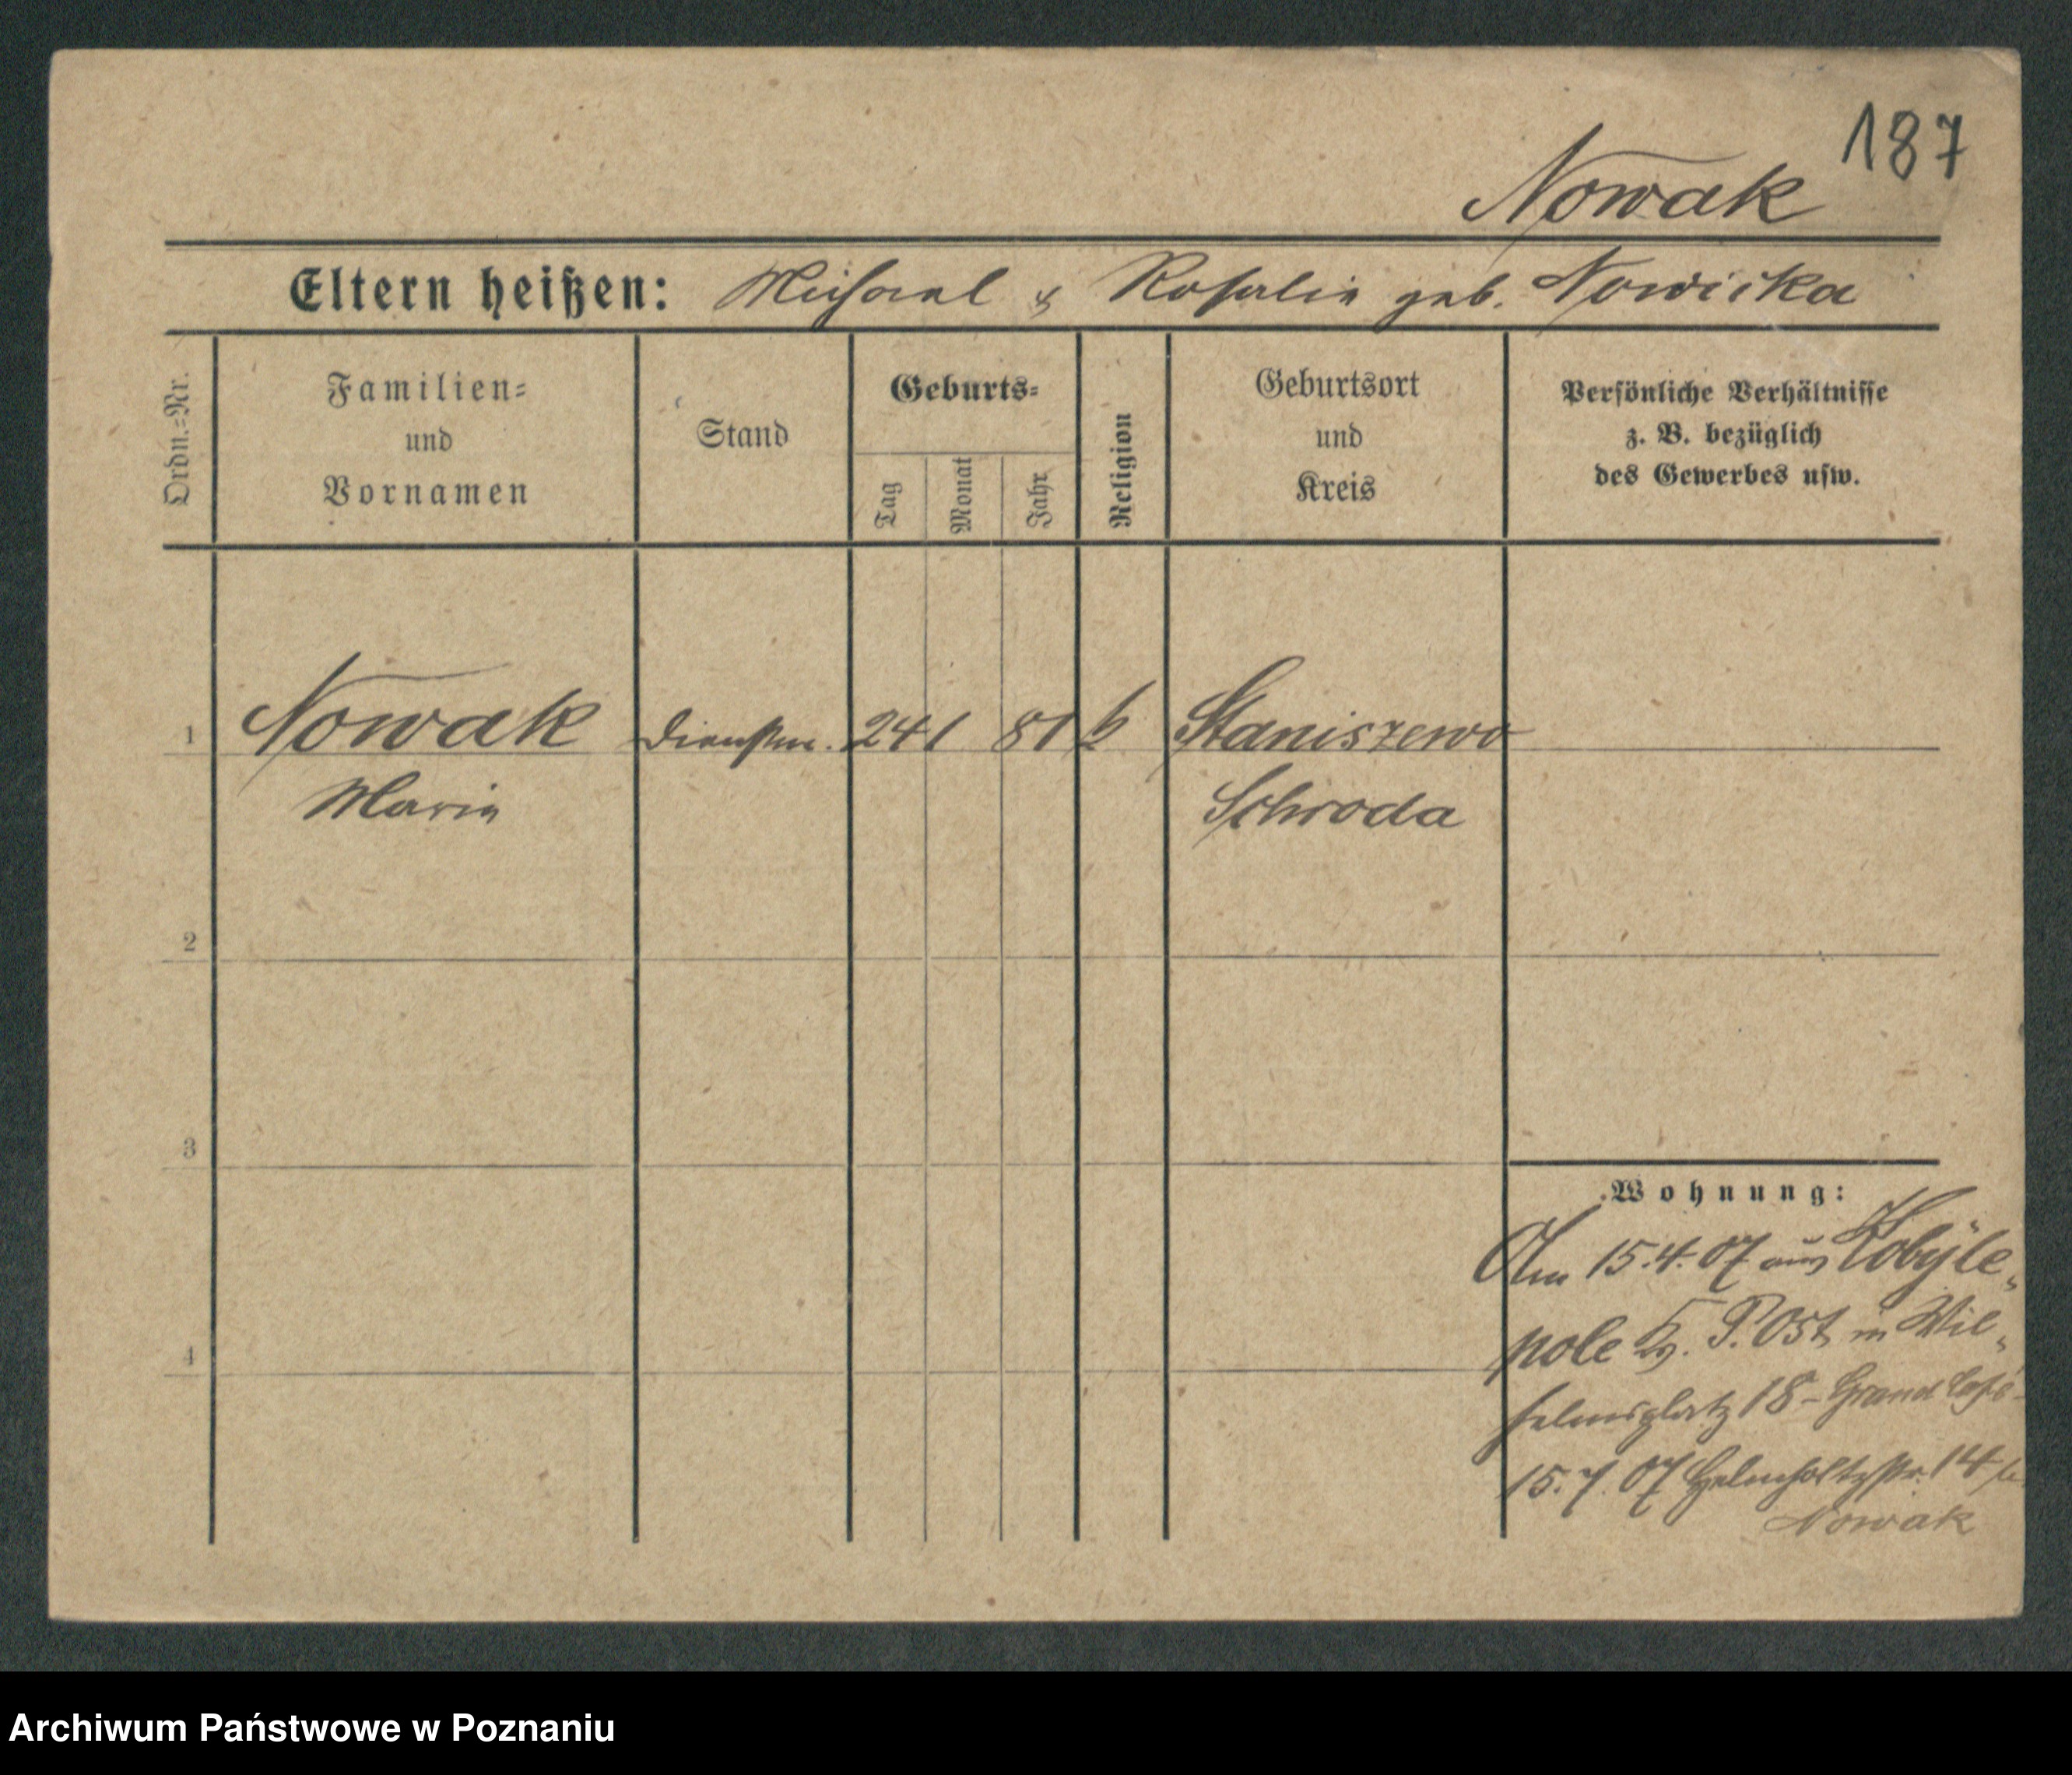 187
Nowak
Eltern heißen: Michael & Rosalie geb. Nowicka
Ordn.=Nr.
Familien=
und
Vornamen
Stand
Geburts=
Tag
Monat
Jahr
Religion
Geburtsort
und
Kreis
Persönliche Verhältnisse
z. B. bezüglich
des Gewerbes usw.
1 Nowak Dienstm. 24 1 81 k Staniszewo
Marie Schroda
2
3
4
Wohnung:
Am 15.4.07 aus Kobyle„
pole Kr. P. Ost in Wil„
helmsplatz 18 - Grand Café -
15.7.07 Helmholtzstr. 14 b.
Nowak
Archiwum Państwowe w Poznaniu